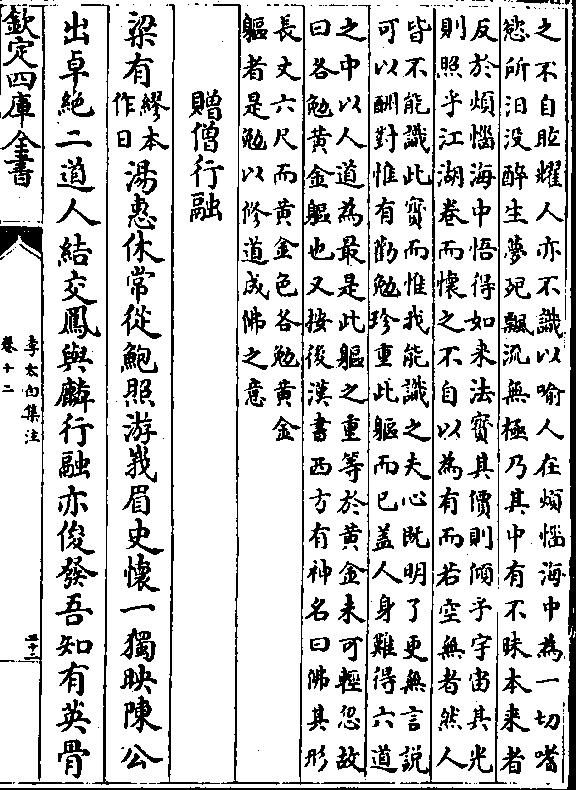 之不自眩耀人亦不識以喻人在煩惱海中為一切嗜
慾所汨没醉生夢死飄沉無極乃其中有不昧本来者
反於煩惱海中悟得如来法寳其價則傾乎宇宙其光
則照乎江湖卷而懷之不自以為有而若空無者然人
皆不能識此寳而惟我能識之夫心既明了更無言説
可以酬對惟有勵勉珍重此軀而已盖人身難得六道
之中以人道為最是此軀之重等於黄金未可輕忽故
曰各勉黄金軀也又按後漢書西方有神名曰佛其形
長丈六尺而黄金色各勉黄金
軀者是勉以修道成佛之意
贈僧行融
梁有繆本作日湯惠休常從鮑照游峩眉史懷一獨映陳公
出卓絶二道人結交鳳與麟行融亦俊發吾知有英骨
欽定四庫全書
李太白集注
卷十二
二十一